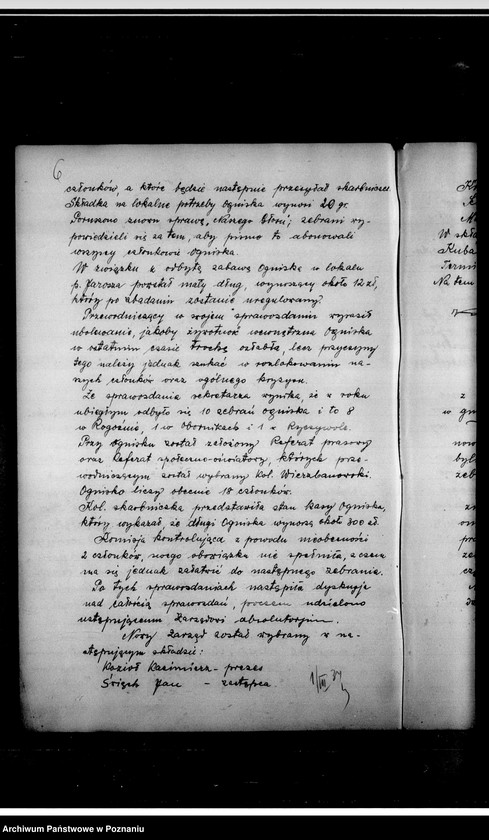 6
członków, a które będzie następnie przesyłał skarbnicze.
Składka na lokalne potrzeby Ogniska wynosi 20 gr.
Poruszono znowu sprawę „Nasego Głosu”; zebrani wy-
powiedzieli się za tem, aby pismo to abonowali
wszyscy członkowie Ogniska.
W związku z odbytą zabawą Ogniska w lokalu
p. Jarosza powstał mały dług, wynoszący około 12 zł,
który po zbadaniu zostanie uregulowany.
Przewodniczący w swojem sprawozdaniu wyraził
ubolewanie, jakoby żywotność wewnętrzna Ogniska
w ostatnim czasie trochę osłabła, lecz przyczyny
tego należy jednak szukać w rozlokowaniu na-
szych członków oraz ogólnego kryzysu.
Ze sprawozdania sekretarza wynika, że w roku
ubiegłym odbyło się 10 zebrań Ogniska i to 8
w Rogoźnie, 1 w Obornikach i 1 w Ryczywole.
Przy Ognisku został założony Referat prasowy
oraz Referat społeczno-oświatowy, których prze-
wodniczącym został wybrany kol. Wierzbanowski.
Ognisko liczy obecnie 18 członków.
Kol. skarbniczka przedstawiła stan kasy Ogniska,
który wykazał, że długi Ogniska wynoszą około 300 zł.
Komisja kontrolująca z powodu nieobecności
2 członków, swego obowiązku nie spełniła, z czem
ma się jednak załatwić do następnego zebrania.
Po tych sprawozdaniach nastąpiła dyskusja
nad całością sprawozdań, poczem udzielono
ustępującemu Zarządowi absolutorjum.
Nowy Zarząd został wybrany w na-
stępującym składzie:
Kozioł Kazimierz - prezes
Święch Jan - zastępca
W skła
Kuba
Termi
Na tem
z
w
now
był
zeb
Archiwum Państwowe w Poznaniu